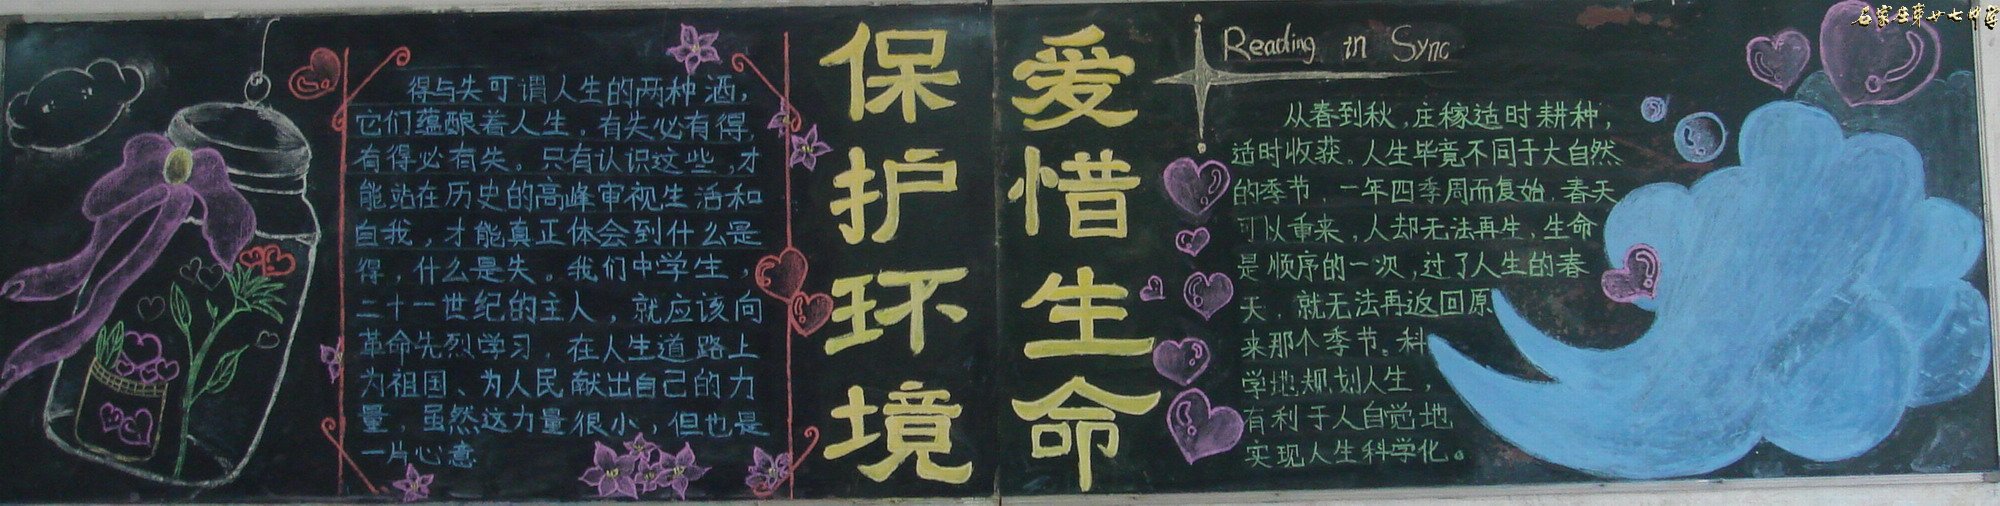 得与失可谓人生的两种酒，
它们蕴酿着人生，有失必有得，
有得必有失。只有认识这些，才
能站在历史的高峰审视生活和
自我，才能真正体会到什么是
得，什么是失。我们中学生，
二十一世纪的主人，就应该向
革命先烈学习，在人生道路上
为祖国、为人民献出自己的力
量，虽然这力量很小，但也是
一片心意
保护环境
爱惜生命
Reading in Sync
从春到秋，庄稼适时耕种，
适时收获。人生毕竟不同于大自然
的季节，一年四季周而复始，春天
可以重来，人却无法再生，生命
是顺序的一次，过了人生的春
天，就无法再返回原
来那个季节。科
学地规划人生，
有利于人自觉地
实现人生科学化。
石家庄第廿七中学